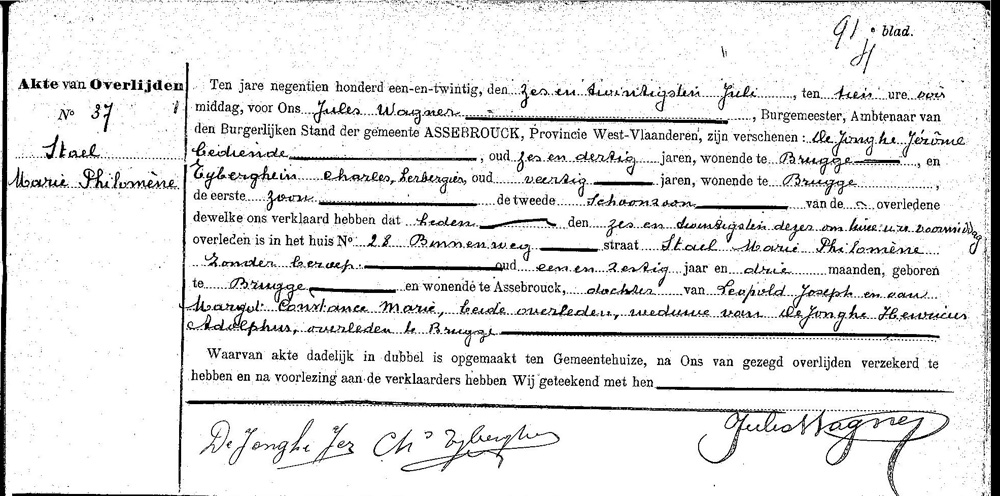 91 blad.
Akte van Overlijden
No 37
Stael
Marie Philomène
Ten jare negentien honderd een-en-twintig, den zes en twintigsten Juli, ten tien ure voor
middag, voor Ons Jules Wagner, Burgemeester, Ambtenaar van
den Burgerlijken Stand der gemeente ASSEBROUCK, Provincie West-Vlaanderen, zijn verschenen : De Jonghe Jérôme
bediende, oud zes en dertig jaren, wonende te Brugge, en
Eyberghein Charles, herbergier, oud veertig jaren, wonende te Brugge,
de eerste zoon de tweede schoonzoon van de overledene
dewelke ons verklaard hebben dat heden den zes en twintigsten dezer om twee ure voormiddag
overleden is in het huis No 28 Binnenweg straat Stael Marie Philomène
zonder beroep oud een en zestig jaar en drie maanden, geboren
te Brugge en wonende te Assebrouck, dochter van Leopold Joseph en van
Margot Constance Marie, beide overleden, weduwe van De Jonghe Henricus
Adolphus, overleden te Brugge
Waarvan akte dadelijk in dubbel is opgemaakt ten Gemeentehuize, na Ons van gezegd overlijden verzekerd te
hebben en na voorlezing aan de verklaarders hebben Wij geteekend met hen
De Jonghe Jer Ch Eyberghein Jules Wagner